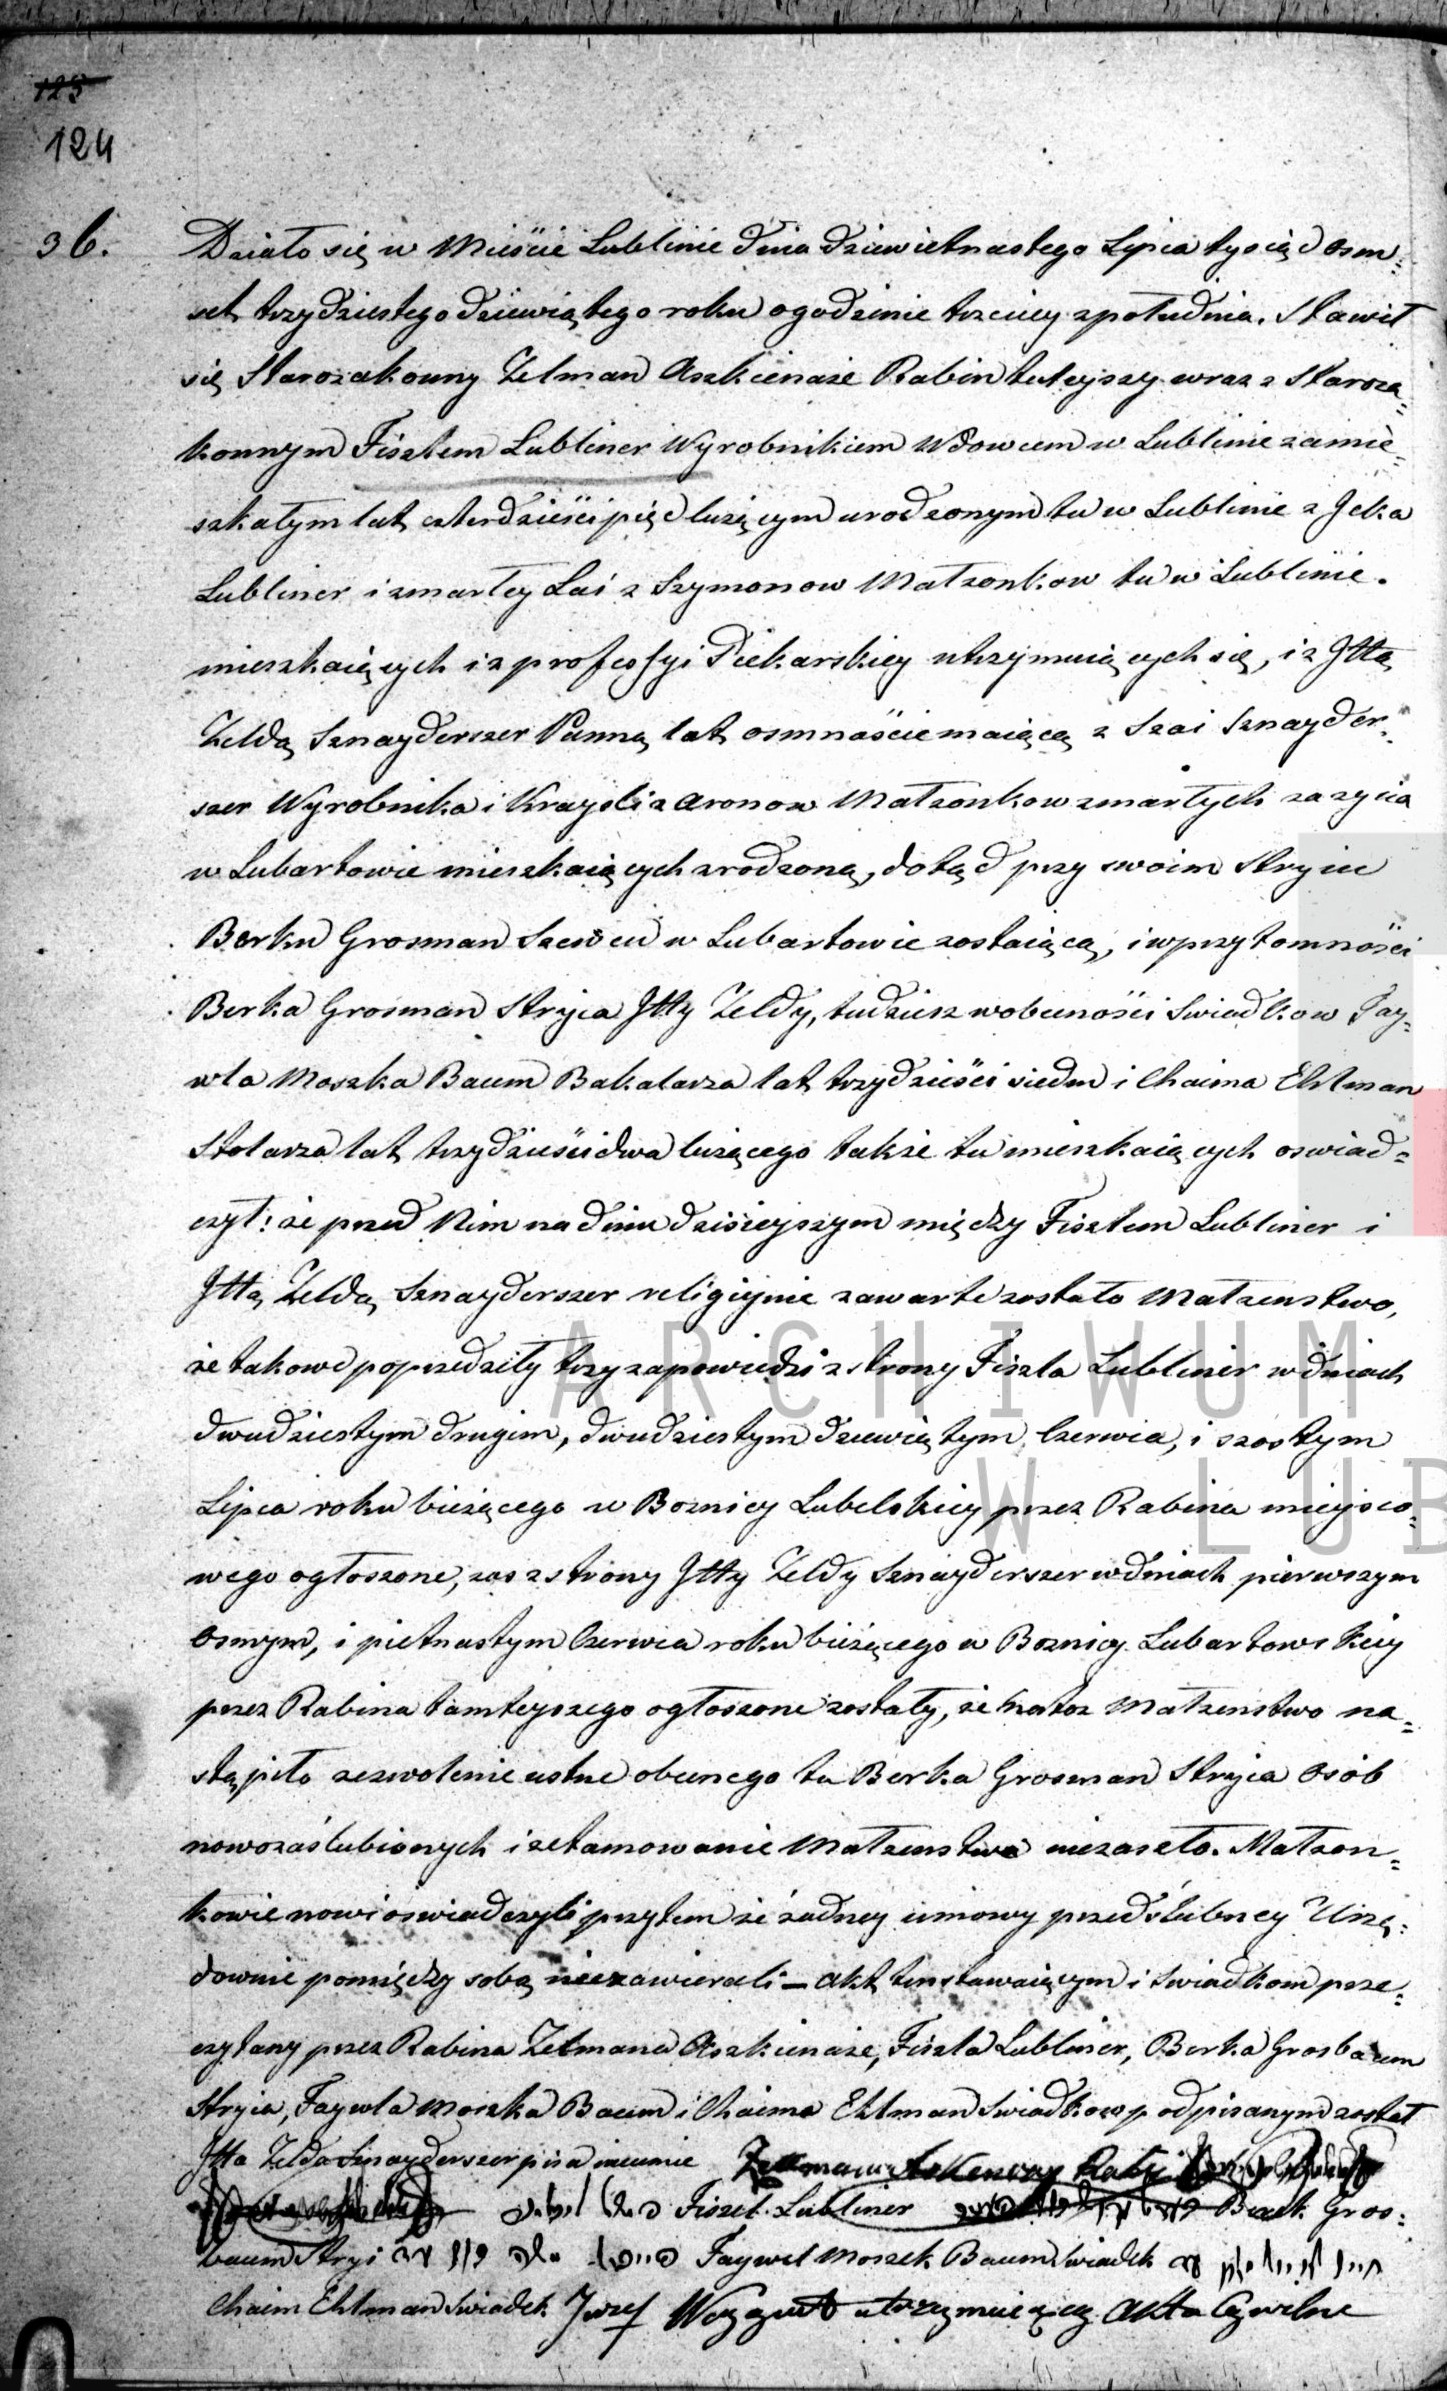 123
124
36. Działo się w Mieście Lublinie dnia dziewietnastego Lipca tysiąc osm=
set trzydziestego dziewiątego roku o godzinie trzeciey z południa. Stawił
się Starozakonny Zelman Aszkienaze Rabin tuteyszy wraz z Staroza=
konnym Fiszlem Lubliner Wyrobnikiem Wdowcem w Lublinie zamie=
szkałym lat czterdzieści pięć liczącym urodzonym tu w Lublinie z Jcka
Lubliner i zmarłey Lai z Szymonow Małżonkow tu w Lublinie
mieszkaiących i z professyi Piekarskiey utrzymuiących się, i z Jttą
Zeldą Sznayderszer Panną lat osmnaście maiącą z Szai Sznayder=
szer Wyrobnika i Krayśli z Aronow Małżonkow zmarłych za życia
w Lubartowie mieszkaiących zrodzoną, dotąd przy swoim Stryiu
Berku Grosman Szewcu w Lubartowie zostaiącą, i w przytomności
Berka Grosman Stryia Jtty Zeldy, tudziesz w obecności Swiadkow Fay=
wla Moszka Baum Bakałarza lat trzydzieści siedm i Chaima Ehlman
Stolarza lat trzydzieści dwa liczącego także tu mieszkaiących oswiad=
czył: że przed Nim na dniu dzisieyszym między Fiszlem Lubliner i
Jttą Zeldą Sznayderszer religiynie zawarte zostało Małzenstwo,
że takowe poprzedziły trzy zapowiedzi z strony Fiszla Lubliner w dniach
dwudziestym drugim, dwudziestym dziewiątym Czerwca, i szostym
Lipca roku bieżącego w Boznicy Lubelskiey przez Rabina mieysco=
wego ogłoszone, zas z strony Jtty Zeldy Sznayderszer w dniach pierwszym
osmym, i pietnastym Czerwca roku bieżącego w Boznicy Lubartowskiey
przez Rabina tamteyszego ogłoszone zostały, że na toż Małzenstwo na=
stąpiło zezwolenie ustne obecnego tu Berka Grosman Stryia osób
nowozaślubionych i zetamowanie Małzenstwa niezaszło. Małżon=
kowie nowi oswiadczyli przytem że żadney umowy przedślubney Urzę=
downie pomiędzy sobą niezawierali – Akt ten stawaiącym i Swiadkom prze=
czytany przez Rabina Zelmana Aszkienaze, Fiszla Lubliner, Berka Grosbaum
Stryia, Faywla Moszka Baum i Chaima Ehlman Swiadkow podpisanym został
Jtta Zelda Sznayderszer pisa nieumie Zellmann Askenazy Rabi
Fiszel Lubliner Berek Gros=
baum Stryi Faywel Moszek Baum Swiadek
Chaim Ehlman Swiadek Jozef utrzymuiący Akta Cywilne
ARCHIWUM
W LUB